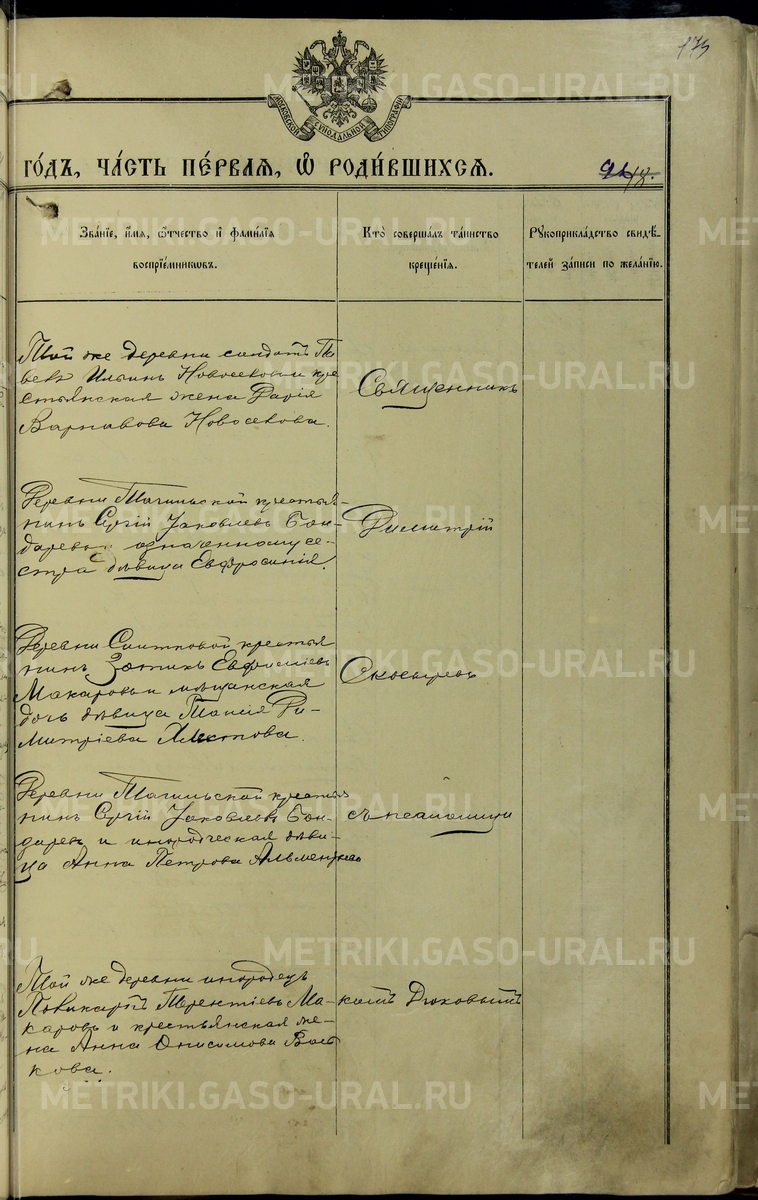 173
МОСКОВСКОЙ СѴНОДАЛЬНОЙ ТИПОГРАФІИ
ГО́ДЪ, ЧА́СТЬ ПЕ́РВАЯ, Ѡ҆ РОДИ́ВШИХСЯ.
Зва́нїе, и҆́мѧ, ѻ҆́тчество и҆ фамѝлїѧ
воспрїе́мникѡвъ.
Кто̀ соверша́лъ та́инство
креще́нїѧ.
Рꙋкоприкла́дство свидѣ́-
телей за́писи по жела́нїю.
Той же деревни солдатъ Па
велъ Ильинъ Новоселовъ и кре
стьянская жена Дарія
Варнавова Новоселова.
Священникъ
Деревни Тагильской крестья-
нинъ Сергій Яковлевъ Бон-
даревъ и означенному се-
стра дѣвица Евфросинія.
Димитрій
Деревни крестья
нинъ Зотикъ
Макаровъ и мѣщанская
дочь дѣвица Таисія Ди-
митріева
Скосыревъ
Деревни Тагильской крестья
нинъ Сергій Яковлевъ Бон-
даревъ и инородческая дѣви-
ца Анна Петрова
съ псаломщи
Той же деревни инородецъ
Поликарпъ Терентіевъ Ма-
каровъ и крестьянская же-
на Анна Онисимова Воль
кова.
комъ Духовымъ
METRIKI.GASO-URAL.RU